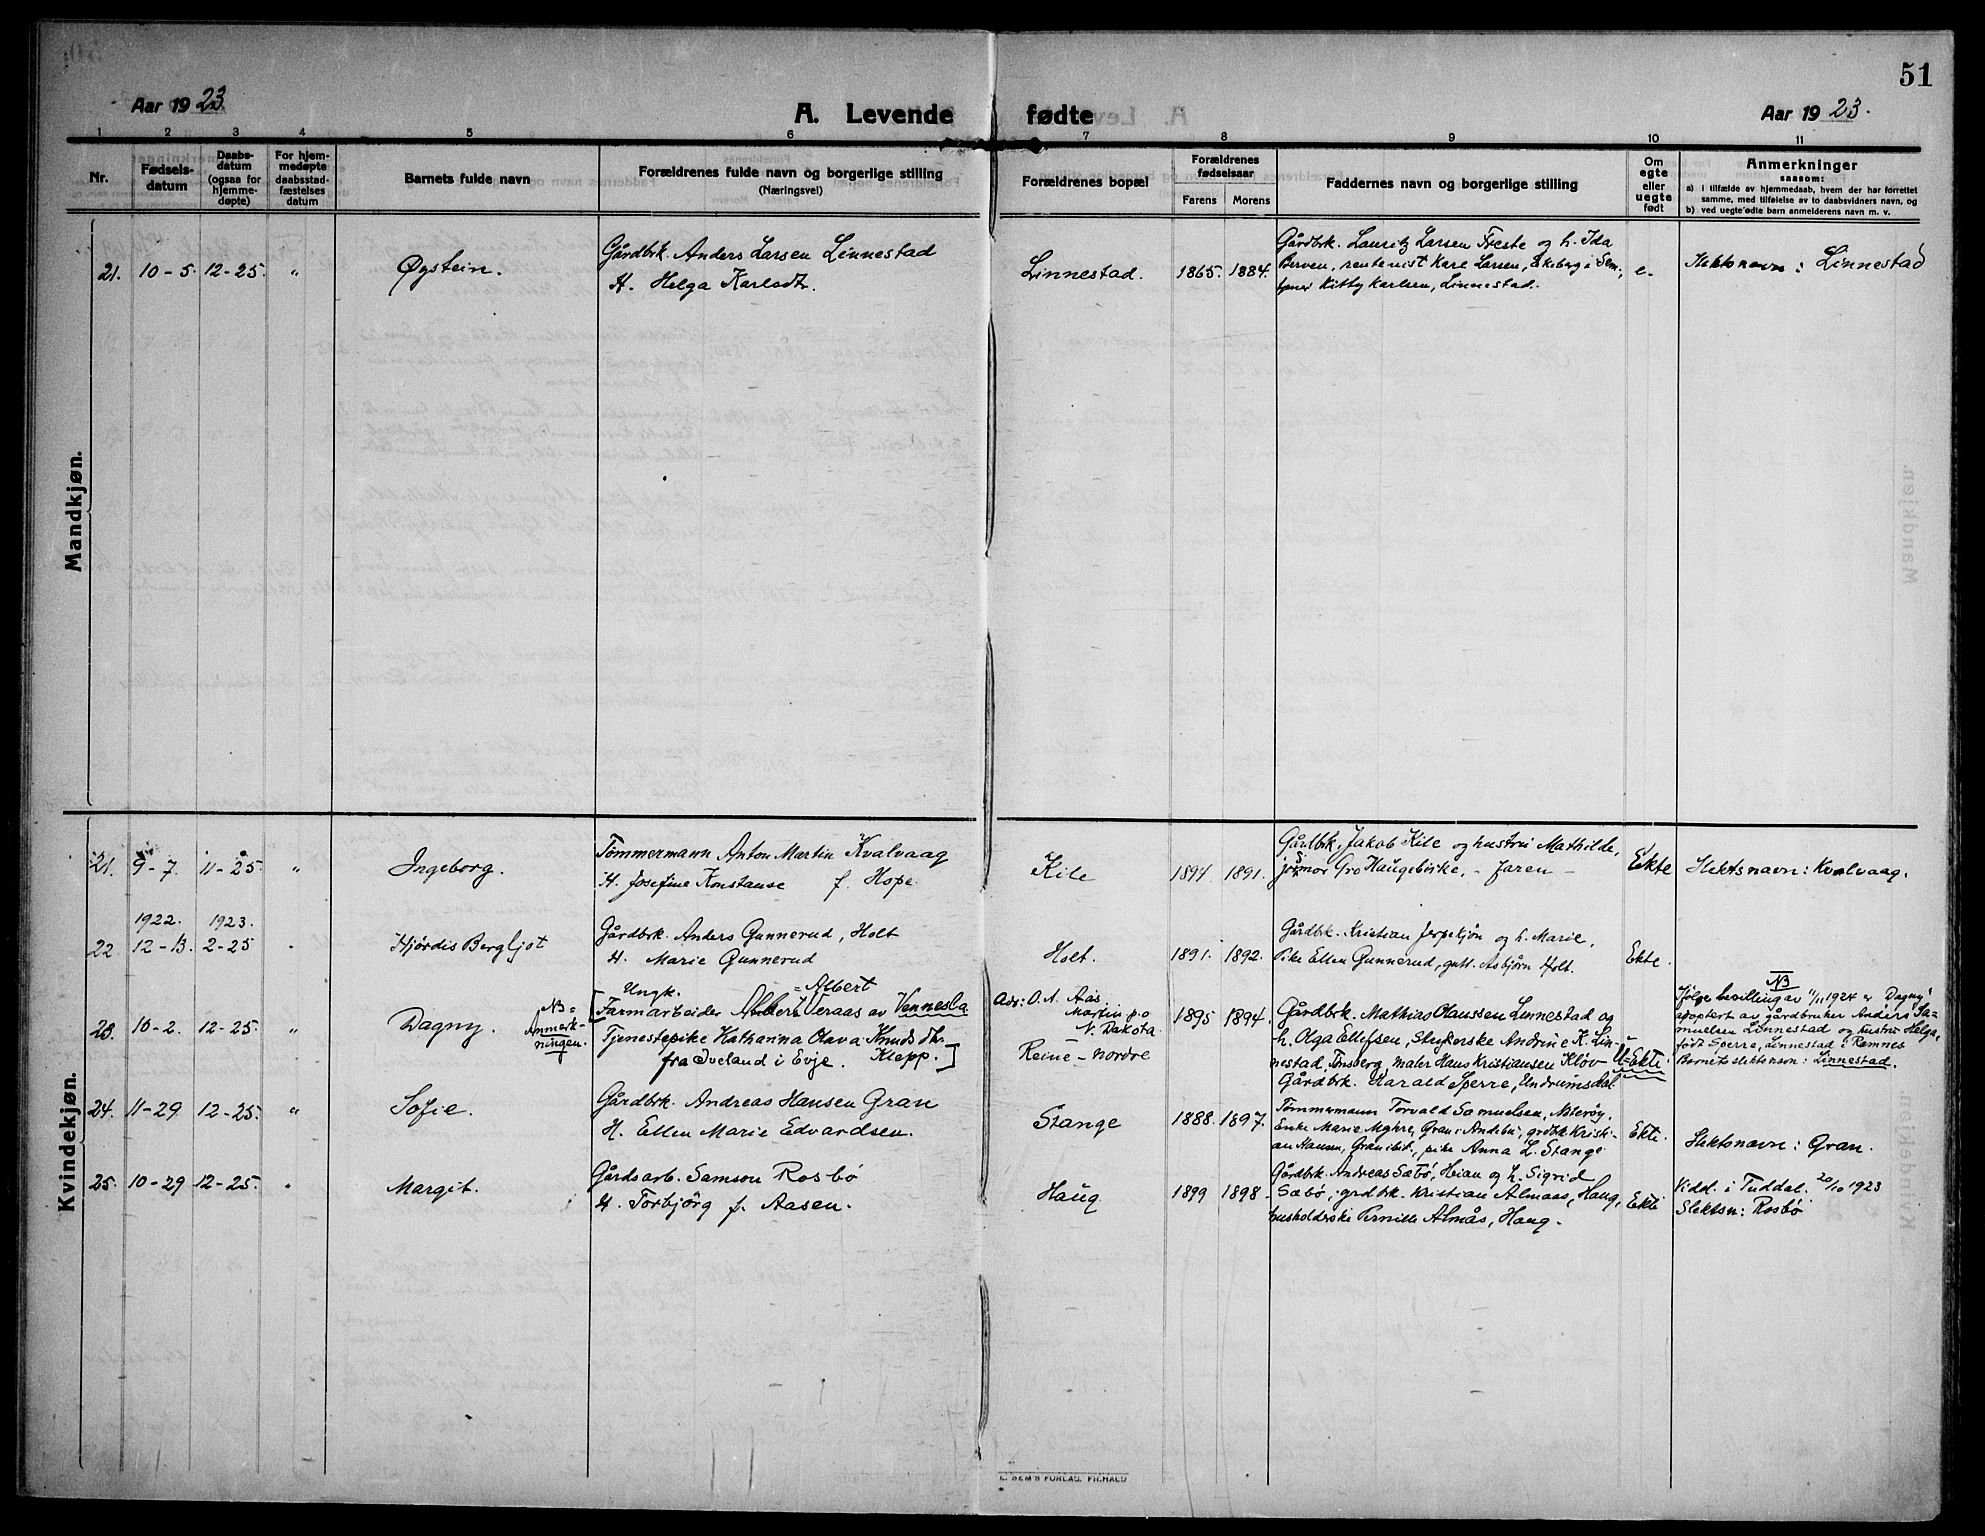 51
Aar 1923
A. Levende fødte
Aar 1923.
1 2 3 4 5 6 7 8 9 10 11
Nr.
Fødsels-
datum
Daabs-
datum
(ogsaa for
hjemme-
døpte)
For hjem-
medøpte
daabsstad-
fæstelses
datum
Barnets fulde navn
Forældrenes fulde navn og borgerlige stilling
(Næringsvei)
Forældrenes bopæl
Forældrenes
fødselsaar
Farens Morens
Faddernes navn og borgerlige stilling
Om
egte
eller
uegte
født
Anmerkninger
saasom:
a) i tilfælde av hjemmedaab, hvem der har forrettet
samme, med tilføielse av to daabsvidners navn, og
b) ved uegte fødte barn anmelderens navn m. v.
Mandkjøn.
21. 10-5. 12-25. " Øystein.
Gårdbrk. Anders Larsen Linnestad
H. Helga Karlsdtr.
Linnestad. 1865. 1884.
Gårdbrk. Lauritz Larsen Freste og h. Ida
Berven, rentenist Kare Larsen, Ekeberg i Sem,
Kitty Karlsen, Linnestad.
e.
Slektsnavn: Linnestad
Kvindekjøn.
21. 9-7. 11-25. " Ingeborg.
Tømmermann Anton Martin Kvalvaag
H. Josefine Konstanse f. Hope.
Kile 1894. 1891.
Gårdbk. Jakob Kile og hustru Mathilde,
jormor Gro Haugebirke, - Jaren -
Ekte
Slektsnavn: Kvalvaag.
1922. 1923.
22. 12-13. 2-25 " Hjørdis Bergljot
Gårdbrk. Anders Gunnerud, Holt
H. Marie Gunnerud
Holt. 1891. 1892.
Gårdbk. Kristian Jerpekjøn og h. Marie,
Pike Ellen Gunnerud, gutt. Asbjørn Holt.
Ekte.
23. 10-2. 12-25. " Dagny.
NB =
Anmerk-
ningen.
Ungk. = Albert
Farmarbeider Albert Veraas av Vennesla
Tjenestepike Kathanna Olava Knudsdtr.
fra Iveland i Evje. Klepp.
Adr: O. A. Aas
Martin p.o
N. Dakota.
Reine - nordre
1895 1894.
Gårdbrk. Mathias Olaussen Linnestad og
h. Olga Ellefsen, Andrine K. Lin-
nestad, Tønsberg, maler Hans Kristiansen Kløv
Gårdbrk. Harald Sperre, Undrumsdal
U-Ekte.
NB
Ifølge bevilling av 11/11 1924 er "Dagny"
adoptert av gårdbruker Anders Sa-
muelsen Linnestad og hustru Helga,
født Sperre, Linnestad i Ramnes
Barnets slektsnavn: Linnestad.
24. 11-29. 12-25. " Sofie.
Gårdbrk. Andreas Hansen Gran
H. Ellen Marie Edvardsen.
Stange 1888. 1897.
Tømmermann Torvald Samuelsen, Nøterøy,
Enke Marie Myhre, Gran i Andebu, grdbk. Kristi-
an Hansen, Gran ibit., pike Anna L. Stange
Ekte.
Slektsnavn: Gran.
25. 10-29 12-25. " Margit.
Gårdsarb. Samson Rosbø
H. Torbjörg f. Aasen.
Haug 1899 1898
Gårdbk. Andreas Sæbø, Heian og h. Sigrid
Sæbø, grdbk. Kristian Almaas, Haug,
husholderske Pernille Almås, Haug.
Ekte
Vidd. i Tuddal. 20/10 1923
Slektsn: Rosbø
E. SEM'S FORLAG, FR.HALD